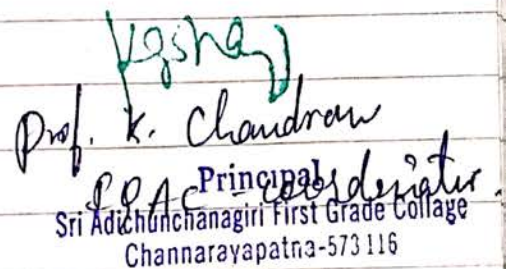 Prof. K. Chandran
Principal
IQAC Coordinator.
Sri Adichunchanagiri First Grade Collage
Channarayapatna-573 116